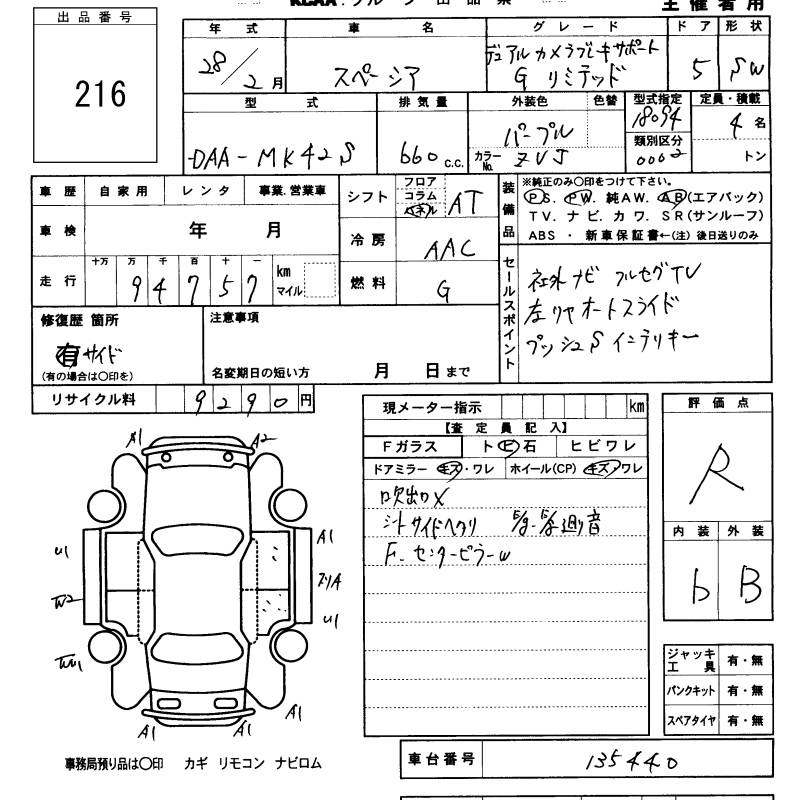 KCAA グループ 出品票
主催者用
出品番号
216
年式 車名 グレード ドア 形状
28/2月 スペーシア デュアルカメラブレーキサポート G リミテッド 5 SW
型式 排気量 外装色 色替 型式指定 定員・積載
DAA-MK42S 660 C.C. パープル 18094 4名
カラーNo. ZVJ 類別区分 0002 トン
車歴 自家用 レンタ 事業.営業車
車検 年 月
走行 十万 万 千 百 十 一
94757 km マイル
シフト フロア コラム パネル AT
冷房 AAC
燃料 G
装備品 ※純正のみ〇印をつけて下さい。
P S. PW. 純AW. AB(エアバック)
TV. ナビ. カワ. SR(サンルーフ)
ABS ・ 新車保証書←(注) 後日送りのみ
セールスポイント
社外ナビ フルセグTV
左リヤオートスライド
プッシュS インテリキー
修復歴 箇所
有 サイド
(有の場合は〇印を)
注意事項
名変期日の短い方 月 日まで
リサイクル料 9290円
現メーター指示 km
【査定員記入】
Fガラス トビ石 ヒビワレ
ドアミラー キズ・ワレ ホイール(CP) キズ/ワレ
吹出口X
シートサイドヘタリ
F. センターピラーw
評価点
R
内装 外装
b B
A1 A2
U1 A1
W2 U1
A1 A1 A1
ジャッキ 工具 有・無
パンクキット 有・無
スペアタイヤ 有・無
事務局預り品は〇印 カギ リモコン ナビロム
車台番号 135440